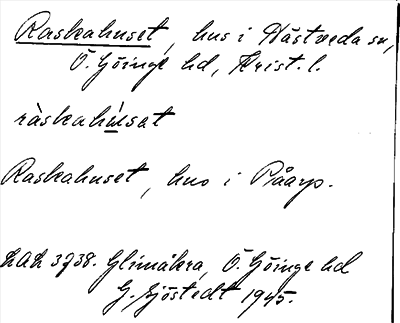 Raskahuset, hus i Hästveda sn,
Ö. Göinge hd, Krist. l.
ràskahu̇̀sat
Raskahuset, hus i Pååarp.
LAL 3738. Glimåkra, Ö. Göinge hd
G. Sjöstedt 1945.